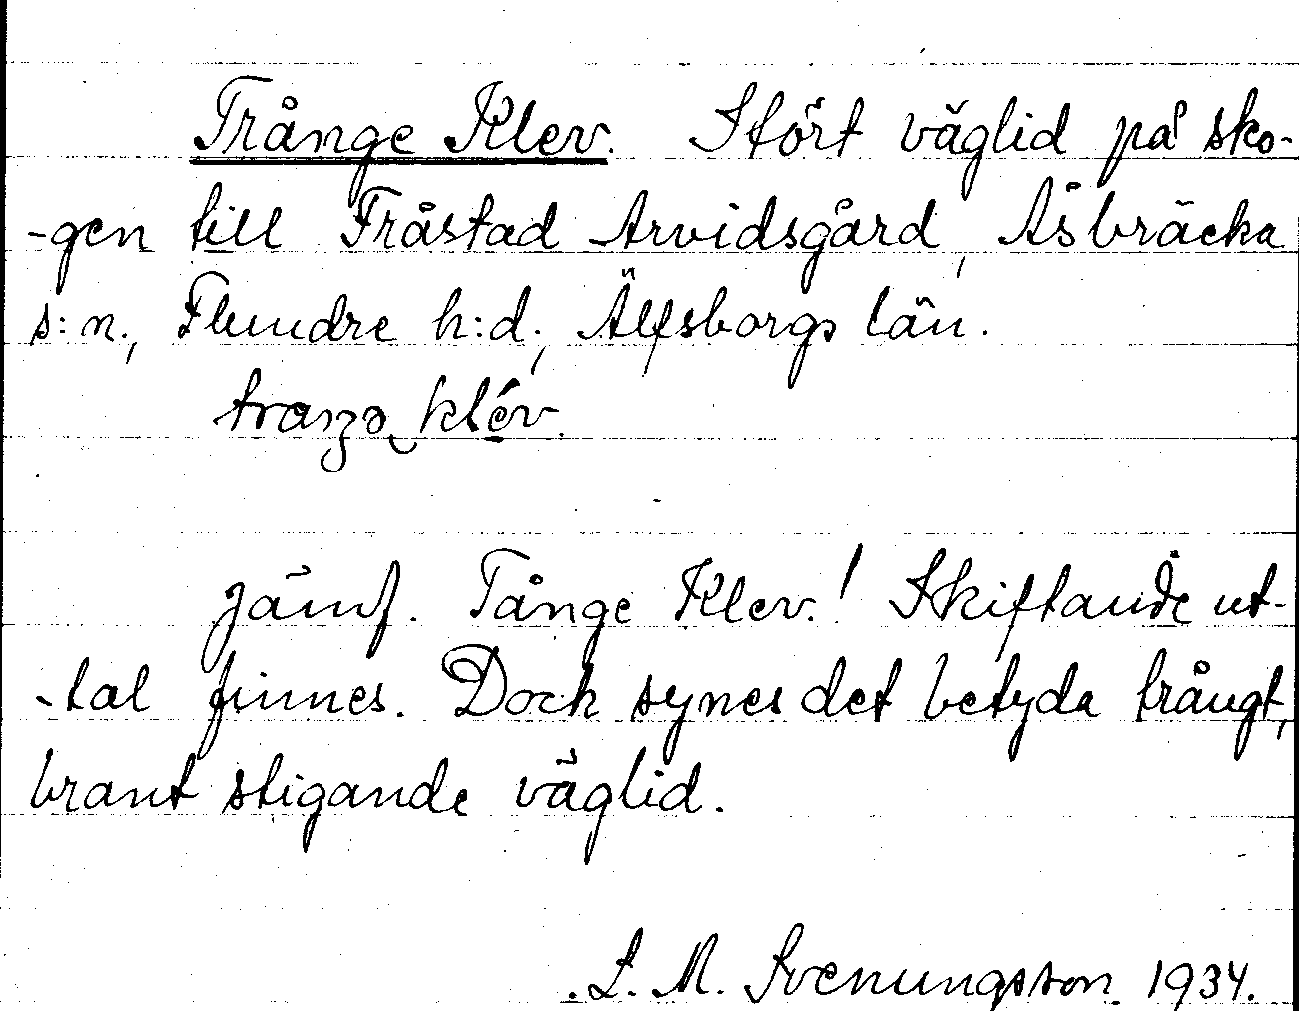 Trånge Klev. Stört väglid på sko-
-gen till Fråstad Arvidsgård, Åsbräcka
s:n., Flundre h:d., Älfsborgs län.
traŋə klév.
Jämf. Tånge Klev! Skiftande ut-
-tal finnes. Dock synes det betyda trångt,
brant stigande väglid.
L. M. Svenungsson 1934.